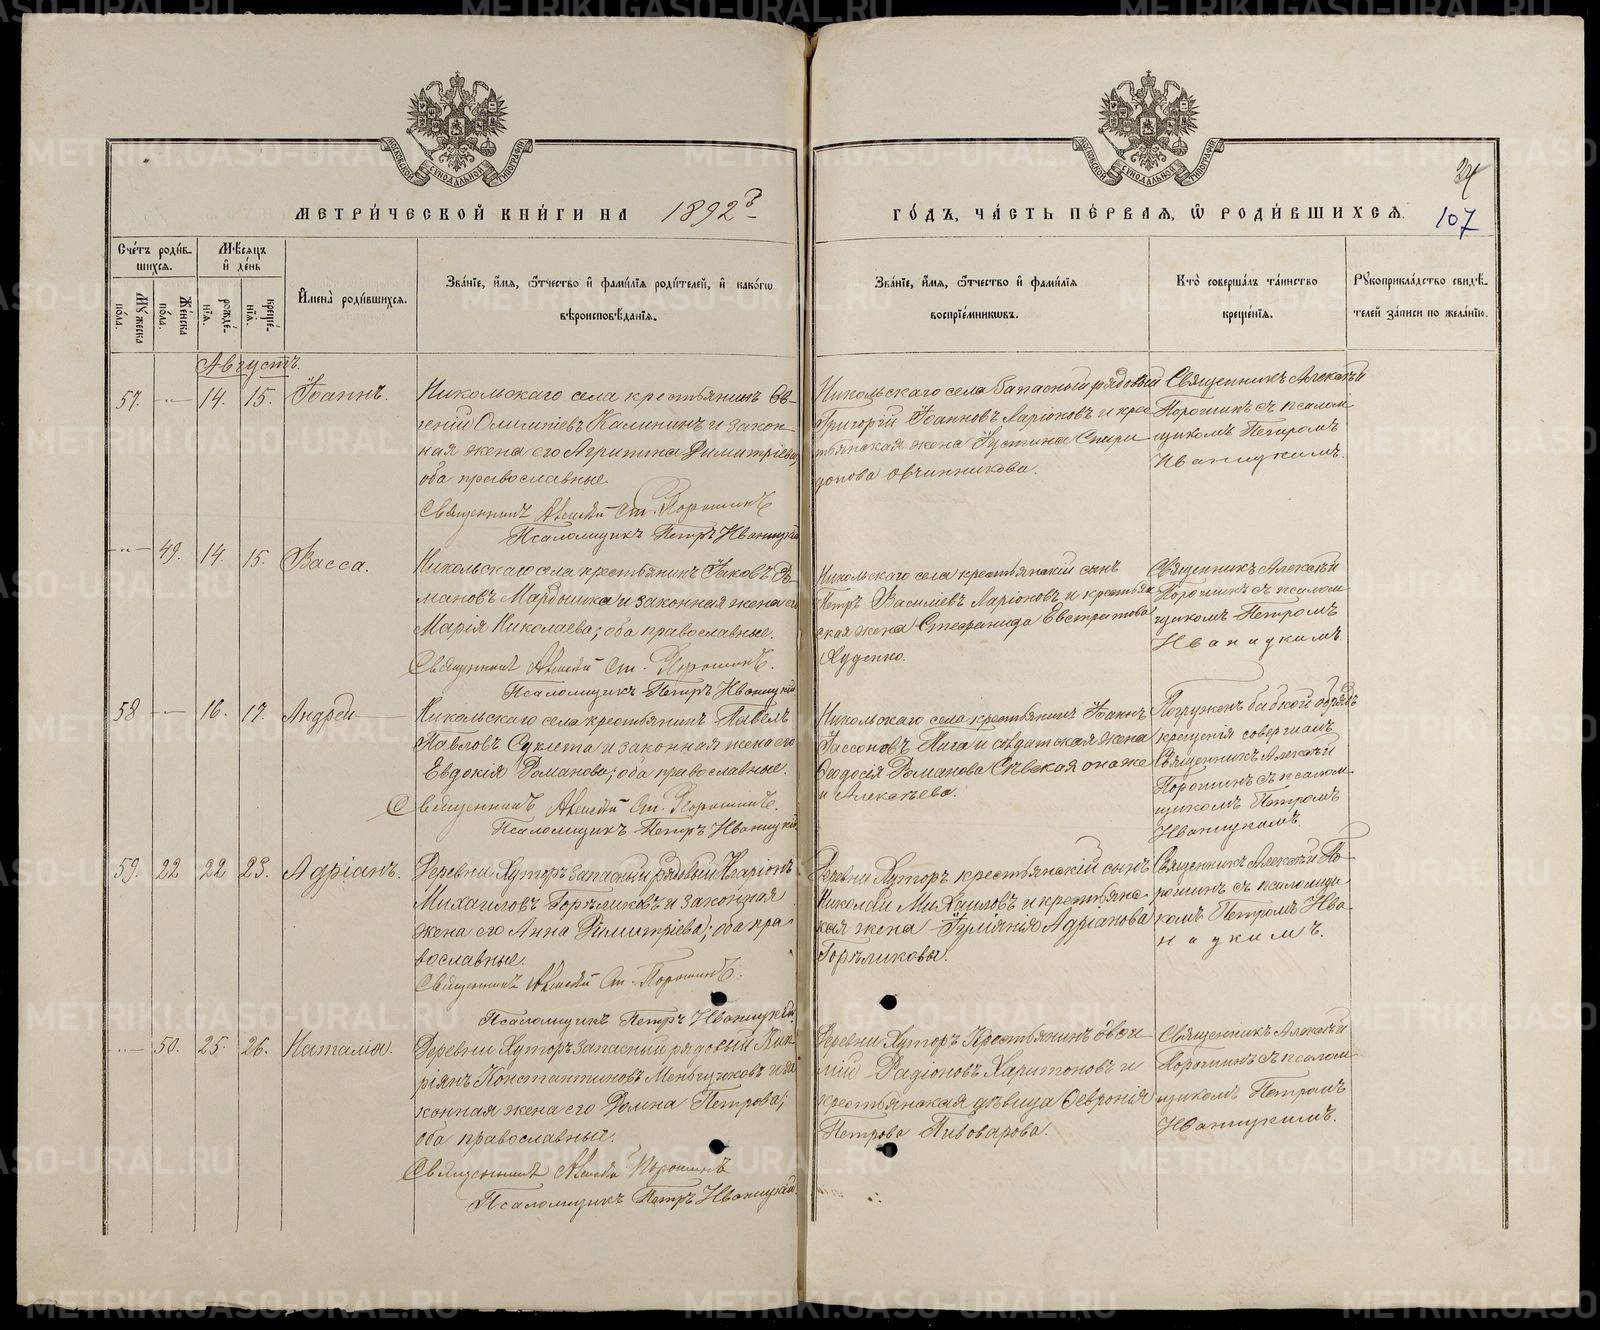 МЕТРИЧЕСКОЙ КНИГИ НА 1892 г
ГОДЪ, ЧАСТЬ ПЕРВАЯ, Ѿ РОДИВШИХСЯ.
107
Счетъ родив-
шихся.
Мѣсяцъ
и день
Мужеска пола.
Женска пола.
рожденія.
крещенія.
Имена родившихся.
Званіе, имя, ѿчество и фамилія родителей, и какого
вѣроисповѣданія.
Званіе, имя, ѿчество и фамилія
воспріемниковъ.
Кто совершалъ таинство
крещенія.
Рукоприкладство свидѣ-
телей записи по желанію.
Августъ.
57. 14. 15. Іоаннъ.
Никольскаго села крестьянинъ Ев-
геній Олимпіевъ Калининъ и закон-
ная жена его Агрипина Димитріева,
оба православные.
Священникъ Алексѣй Ст. Порошинъ
Псаломщикъ Петръ Иваницкій
Никольскаго села запасный рядовый
Григорій Іоанновъ Ларіоновъ и крес
тьянская жена Іустина Спири
донова Овчинникова.
Священникъ Алексѣй
Порошинъ съ псалом-
щикомъ Петромъ
Иваницкимъ.
49. 14. 15. Васса.
Никольскаго села крестьянинъ Іаковъ Ро-
мановъ и законная жена его
Марія Николаева; оба православные.
Священникъ Алексѣй Ст. Порошинъ.
Псаломщикъ Петръ Иваницкій
Никольскаго села крестьянскій сынъ
Петръ Василіевъ Ларіоновъ и крестьян
ская жена Стефанида Евстратова
Худенко.
Священникъ Алексѣй
Порошинъ съ псалом-
щикомъ Петромъ
Иваницкимъ.
58 16. 17. Андрей
Никольскаго села крестьянинъ Павелъ
Павловъ и законная жена его
Евдокія Романова; оба православные.
Священникъ Алексѣй Ст. Порошинъ.
Псаломщикъ Петръ Иваницкій
Никольскаго села крестьянинъ Іоаннъ
и солдатская жена
Ѳеодосія Романова она же
и Алексѣева.
Погруженъ бабкой обрядъ
крещенія совершалъ
Священникъ Алексѣй
Порошинъ съ псалом-
щикомъ Петромъ
Иваницкимъ.
59. 22 22 23. Адріанъ.
Деревни Хуторъ запасный рядовый Иларіонъ
Михаиловъ Горѣликовъ и законная
жена его Анна Димитріева; оба пра
вославные.
Священникъ Алексѣй Ст. Порошинъ.
Псаломщикъ Петръ Иваницкій.
Деревни Хуторъ крестьянскій сынъ
Николай Михаиловъ и крестьянс-
кая жена Іуліянія Адріанова
Горѣликовы.
Священникъ Алексѣй По-
рошинъ съ псаломщи
комъ Петромъ Ива-
ницкимъ.
50. 25. 26. Наталія.
Деревни Хуторъ запасный рядовый Кип-
ріянъ Константиновъ и за
конная жена его Домна Петрова;
оба православные.
Священникъ Алексѣй Порошинъ
Псаломщикъ Петръ Иваницкій
Деревни Хуторъ Крестьянинъ
Радіоновъ Харитоновъ и
крестьянская дѣвица Ѳевронія
Петрова Пивоварова.
Священникъ Алексѣй
Порошинъ съ псалом-
щикомъ Петромъ
Иваницкимъ.